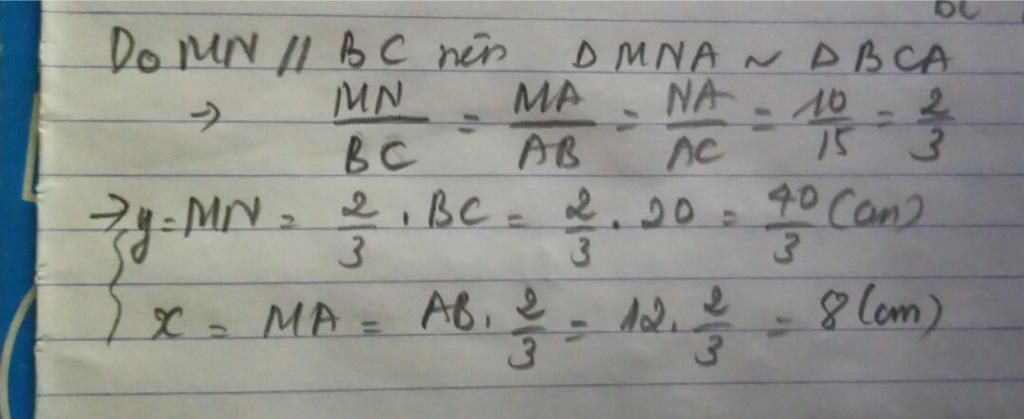 BC
Do MN // BC nên Δ MNA ~ Δ BCA
→ MN/BC = MA/AB = NA/AC = 10/15 = 2/3
→ y = MN = 2/3 . BC = 2/3 . 20 = 40/3 (cm)
x = MA = AB . 2/3 = 12 . 2/3 = 8 (cm)